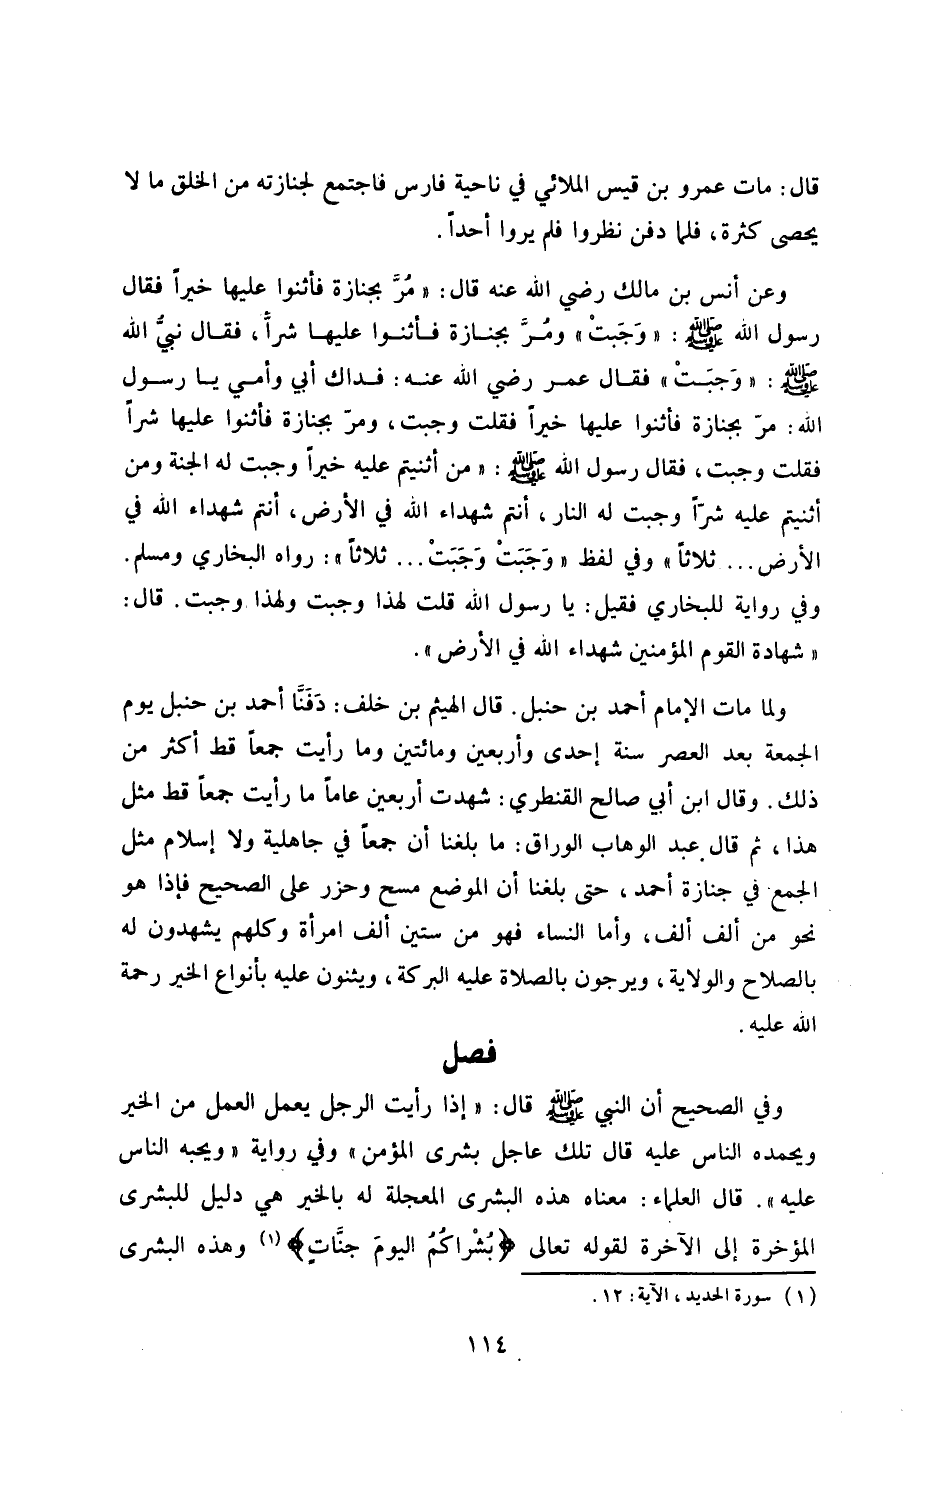 قال: مات عمرو بن قيس الملائي في ناحية فارس فاجتمع لجنازته من الخلق ما لا
يحصى كثرة، فلما دفن نظروا فلم يروا أحداً.
وعن أنس بن مالك رضي الله عنه قال: «مُرَّ بجنازة فأثنوا عليها خيراً فقال
رسول الله ﷺ: «وَجَبَتْ» ومُرَّ بجنازة فأثنوا عليها شراً، فقال نبيُّ الله
ﷺ: «وَجبَتْ» فقال عمر رضي الله عنه: فداك أبي وأمي يا رسول
الله: مرّ بجنازة فأثنوا عليها خيراً فقلت وجبت، ومرّ بجنازة فأثنوا عليها شراً
فقلت وجبت، فقال رسول الله ﷺ: «من أثنيتم عليه خيراً وجبت له الجنة ومن
أثنيتم عليه شرّاً وجبت له النار، أنتم شهداء الله في الأرض، أنتم شهداء الله في
الأرض... ثلاثاً» وفي لفظ «وَجَبَتْ وَجَبَتْ... ثلاثاً»: رواه البخاري ومسلم.
وفي رواية للبخاري فقيل: يا رسول الله قلت لهذا وجبت ولهذا وجبت. قال:
«شهادة القوم المؤمنين شهداء الله في الأرض».
ولما مات الإمام أحمد بن حنبل. قال الهيثم بن خلف: دَفَنَّا أحمد بن حنبل يوم
الجمعة بعد العصر سنة إحدى وأربعين ومائتين وما رأيت جمعاً قط أكثر من
ذلك. وقال ابن أبي صالح القنطري: شهدت أربعين عاماً ما رأيت جمعاً قط مثل
هذا، ثم قال عبد الوهاب الوراق: ما بلغنا أن جمعاً في جاهلية ولا إسلام مثل
الجمع في جنازة أحمد، حتى بلغنا أن الموضع مسح وحزر على الصحيح فإذا هو
نحو من ألف ألف، وأما النساء فهو من ستين ألف امرأة وكلهم يشهدون له
بالصلاح والولاية، ويرجون بالصلاة عليه البركة، ويثنون عليه بأنواع الخير رحمة
الله عليه.
فصل
وفي الصحيح أن النبي ﷺ قال: «إذا رأيت الرجل يعمل العمل من الخير
ويحمده الناس عليه قال تلك عاجل بشرى المؤمن» وفي رواية «ويحبه الناس
عليه». قال العلماء: معناه هذه البشرى المعجلة له بالخير هي دليل للبشرى
المؤخرة إلى الآخرة لقوله تعالى ﴿بُشْراكُمُ اليومَ جنَّاتٍ﴾(١) وهذه البشرى
(١) سورة الحديد، الآية: ١٢.
١١٤